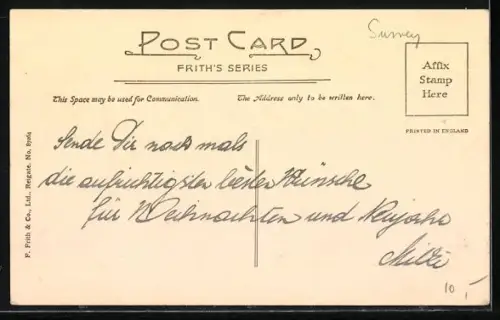 Surrey
POST CARD
FRITH'S SERIES
Affix
Stamp
Here
This Space may be used for Communication.
The Address only to be written here.
PRINTED IN ENGLAND
Sende Dir noch mals
die aufrichtigsten besten Wünsche
für Weihnachten und Neujahr
F. Frith & Co., Ltd., Reigate. No.
10,-